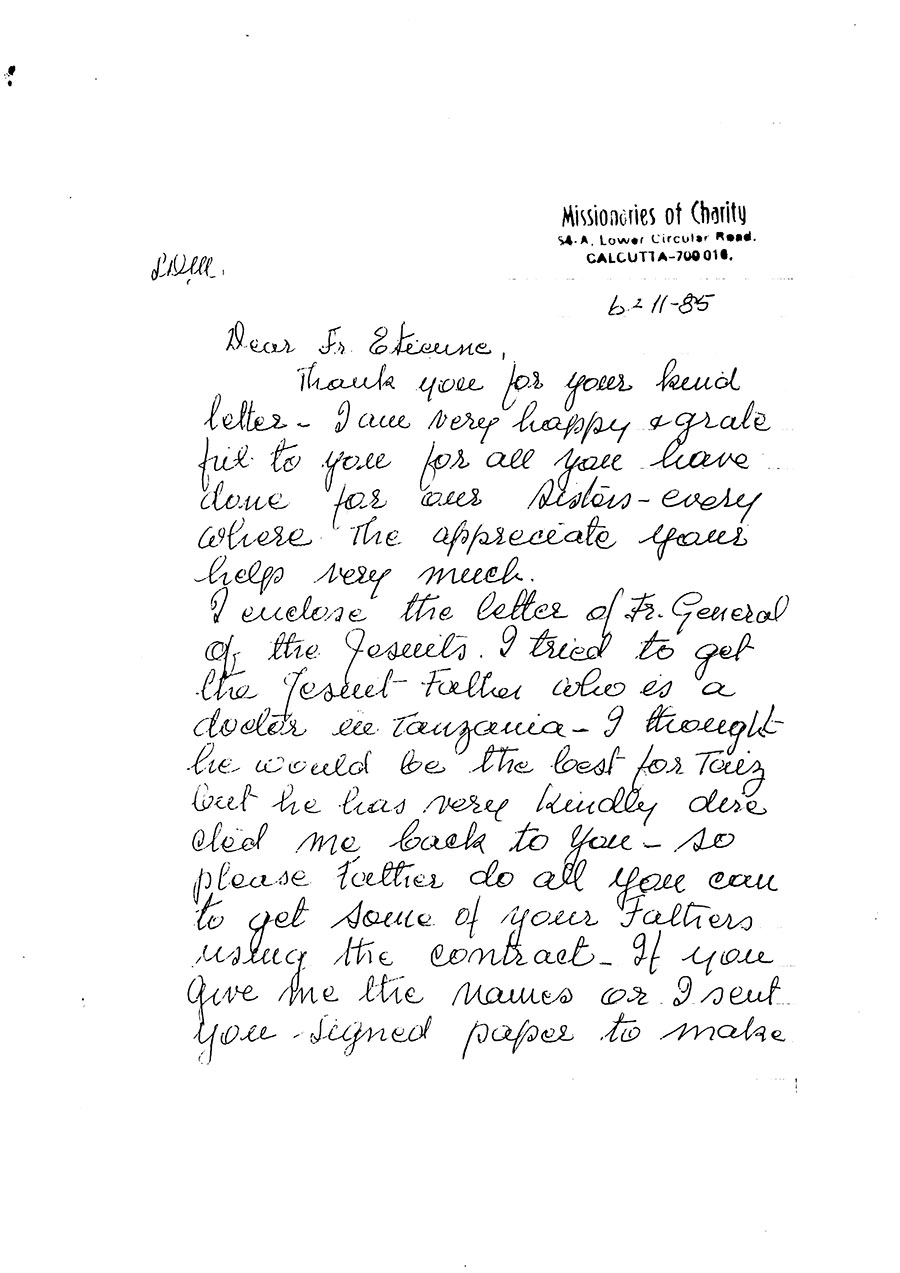 Missionaries of Charity
54-A, Lower Circular Road.
CALCUTTA-700016.
LDM.
6-11-85
Dear Fr. Etienne,
Thank you for your kind
letter - I am very happy & grate
ful to you for all you have
done for our Sisters - every
where the appreciate your
help very much.
I enclose the letter of Fr. General
of the Jesuits. I tried to get
the Jesuit Father who is a
doctor in Tanzania - I thought
he would be the best for Taiz
but he has very kindly dire
cted me back to you - so
please Father do all you can
to get some of your Fathers
using the contract - If you
give me the names or I sent
you signed paper to make